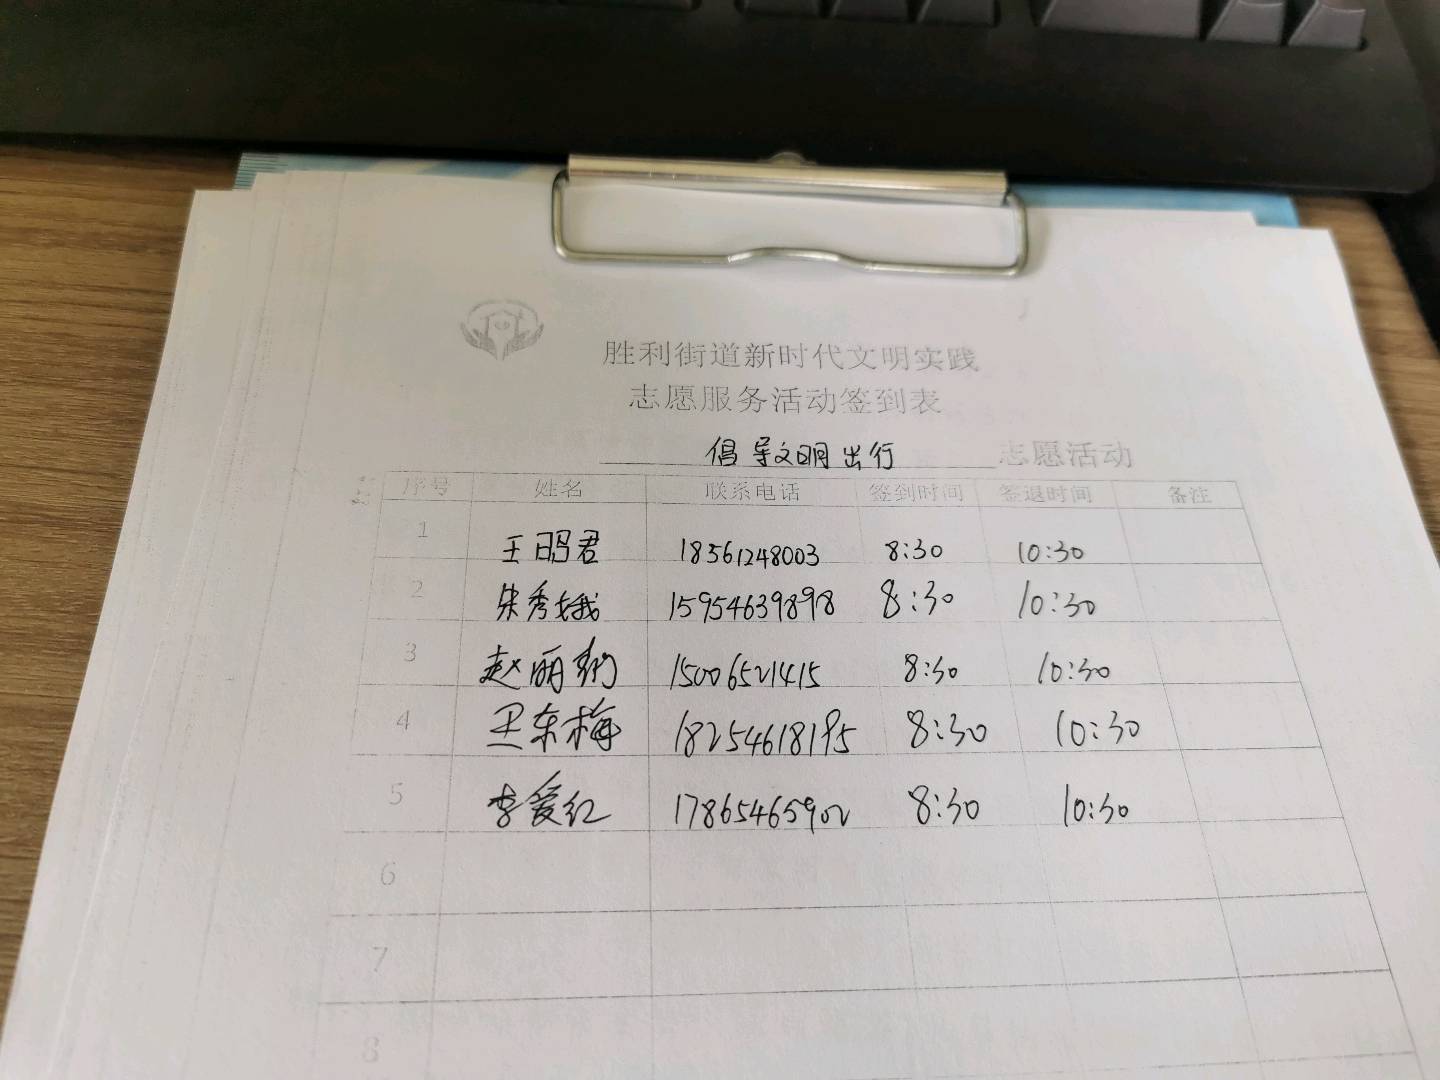 胜利街道新时代文明实践
志愿服务活动签到表
倡导文明出行 志愿活动
序号 姓名 联系电话 签到时间 签退时间 备注
1 王昭君 18561248003 8:30 10:30
2 朱秀娥 15954639898 8:30 10:30
3 赵丽 15006521415 8:30 10:30
4 东梅 18254618195 8:30 10:30
5 李爱红 17865465902 8:30 10:30
6
7
8